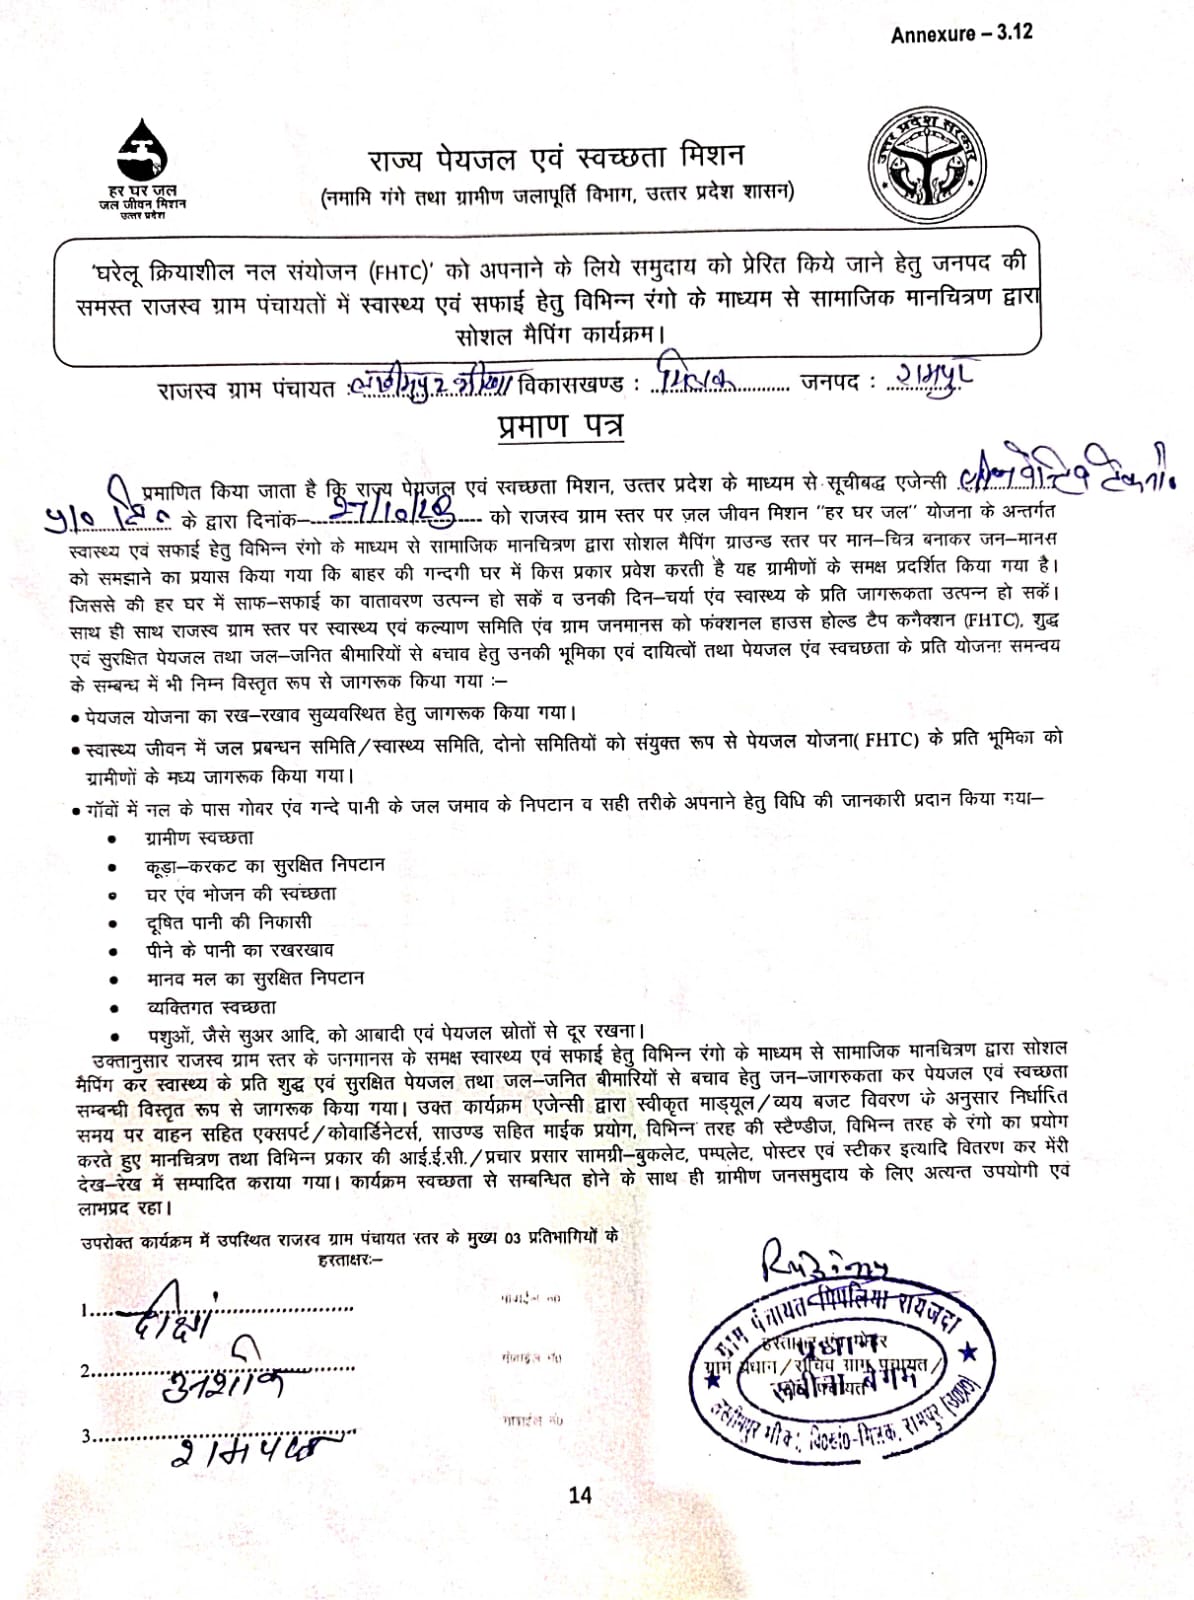 Annexure – 3.12
हर घर जल
जल जीवन मिशन
उत्तर प्रदेश
उत्तर प्रदेश सरकार
राज्य पेयजल एवं स्वच्छता मिशन
(नमामि गंगे तथा ग्रामीण जलापूर्ति विभाग, उत्तर प्रदेश शासन)
'घरेलू क्रियाशील नल संयोजन (FHTC)' को अपनाने के लिये समुदाय को प्रेरित किये जाने हेतु जनपद की
समस्त राजस्व ग्राम पंचायतों में स्वास्थ्य एवं सफाई हेतु विभिन्न रंगो के माध्यम से सामाजिक मानचित्रण द्वारा
सोशल मैपिंग कार्यक्रम।
राजस्व ग्राम पंचायत : लखीमपुर विकासखण्ड : मिलक जनपद : रामपुर
प्रमाण पत्र
प्रमाणित किया जाता है कि राज्य पेयजल एवं स्वच्छता मिशन, उत्तर प्रदेश के माध्यम से सूचीबद्ध एजेन्सी
प्रा० लि० के द्वारा दिनांक– 27/10/23 को राजस्व ग्राम स्तर पर ज़ल जीवन मिशन "हर घर जल" योजना के अन्तर्गत
स्वास्थ्य एवं सफाई हेतु विभिन्न रंगो के माध्यम से सामाजिक मानचित्रण द्वारा सोशल मैपिंग ग्राउन्ड स्तर पर मान–चित्र बनाकर जन–मानस
को समझाने का प्रयास किया गया कि बाहर की गन्दगी घर में किस प्रकार प्रवेश करती है यह ग्रामीणों के समक्ष प्रदर्शित किया गया है।
जिससे की हर घर में साफ–सफाई का वातावरण उत्पन्न हो सकें व उनकी दिन–चर्या एंव स्वास्थ्य के प्रति जागरूकता उत्पन्न हो सकें।
साथ ही साथ राजस्व ग्राम स्तर पर स्वास्थ्य एवं कल्याण समिति एंव ग्राम जनमानस को फंक्शनल हाउस होल्ड टैप कनैक्शन (FHTC), शुद्ध
एवं सुरक्षित पेयजल तथा जल–जनित बीमारियों से बचाव हेतु उनकी भूमिका एवं दायित्वों तथा पेयजल एंव स्वचछता के प्रति योजना समन्वय
के सम्बन्ध में भी निम्न विस्तृत रूप से जागरूक किया गया :–
• पेयजल योजना का रख–रखाव सुव्यवस्थित हेतु जागरूक किया गया।
• स्वास्थ्य जीवन में जल प्रबन्धन समिति/स्वास्थ्य समिति, दोनो समितियों को संयुक्त रूप से पेयजल योजना( FHTC) के प्रति भूमिका को
ग्रामीणों के मध्य जागरूक किया गया।
• गॉवों में नल के पास गोवर एंव गन्दे पानी के जल जमाव के निपटान व सही तरीके अपनाने हेतु विधि की जानकारी प्रदान किया गया–
• ग्रामीण स्वच्छता
• कूड़ा–करकट का सुरक्षित निपटान
• घर एंव भोजन की स्वच्छता
• दूषित पानी की निकासी
• पीने के पानी का रखरखाव
• मानव मल का सुरक्षित निपटान
• व्यक्तिगत स्वच्छता
• पशुओं, जैसे सुअर आदि, को आबादी एवं पेयजल स्रोतों से दूर रखना।
उक्तानुसार राजस्व ग्राम स्तर के जनगानस के समक्ष स्वास्थ्य एवं सफाई हेतु विभिन्न रंगो के माध्यम से सामाजिक मानचित्रण द्वारा सोशल
मैपिंग कर स्वास्थ्य के प्रति शुद्ध एवं सुरक्षित पेयजल तथा जल–जनित बीमारियों से बचाव हेतु जन–जागरुकता कर पेयजल एवं स्वच्छता
सम्बन्धी विस्तृत रूप से जागरूक किया गया। उक्त कार्यक्रम एजेन्सी द्वारा स्वीकृत माड्यूल/व्यय बजट विवरण के अनुसार निर्धारित
समय पर वाहन सहित एक्सपर्ट/कोवार्डिनेटर्स, साउण्ड सहित माईक प्रयोग, विभिन्न तरह की स्टैण्डीज, विभिन्न तरह के रंगो का प्रयोग
करते हुए मानचित्रण तथा विभिन्न प्रकार की आई.ई.सी./प्रचार प्रसार सामग्री–बुकलेट, पम्पलेट, पोस्टर एवं स्टीकर इत्यादि वितरण कर मेंरी
देख–रेख में सम्पादित कराया गया। कार्यक्रम स्वच्छता से सम्बन्धित होने के साथ ही ग्रामीण जनसमुदाय के लिए अत्यन्त उपयोगी एवं
लाभप्रद रहा।
उपरोक्त कार्यक्रम में उपस्थित राजस्व ग्राम पंचायत स्तर के मुख्य 03 प्रतिभागियों के
हस्ताक्षरः–
1.
2.
मोबाईल नं0
3. रामपाल
मोबाईल नं0
ग्राम पंचायत-पिपलिया रायजदा
ग्राम प्रधान/सचिव ग्राम पंचायत/
प्रधान
बेगम
वि०खं०-मिलक, रामपुर (उ०प्र०)
14